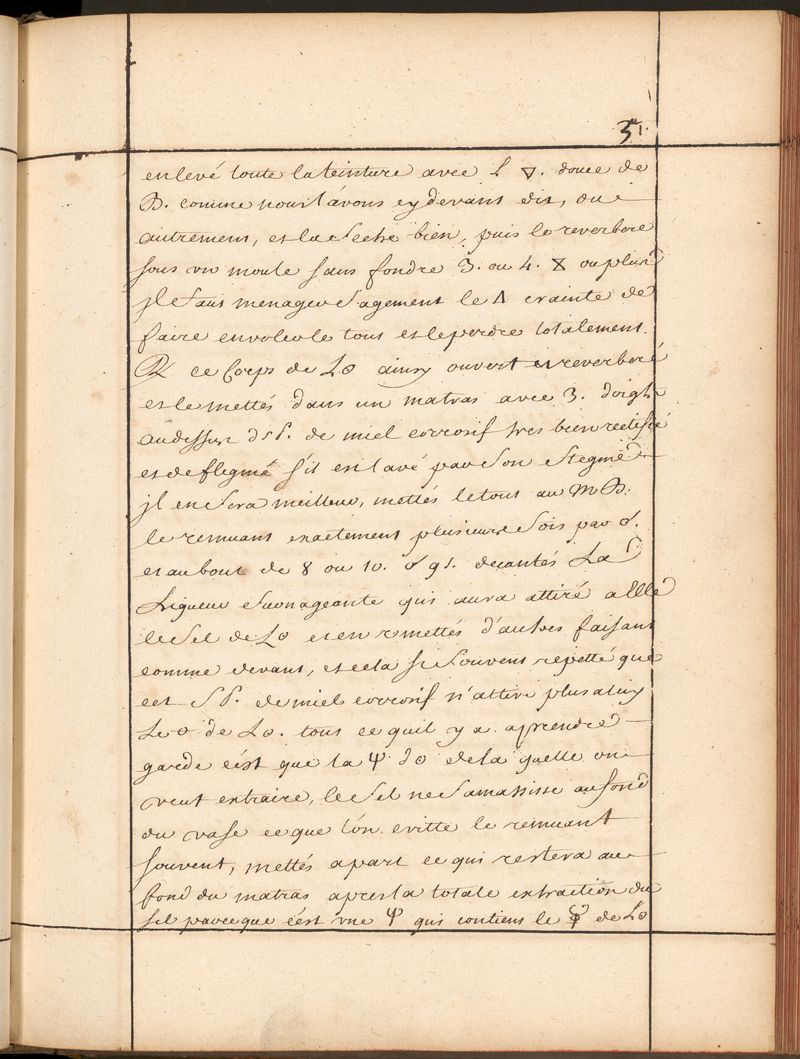 31.
enlevé toute la teinture avec L 🜄. douce de
B. comme nous l'ávons cy devant dit, ou
autrement, et la seche bien, puis le reverbere
sous un moule sans fondre 3. ou 4. X ou plus
jl faut menager sagement le 🜂 crainte de
faire envoler le tout et le perdre totalement.
℞ ce Corps de L☉ ainsy ouvert et reverberé
et le mettés dans un matras avec 3. doigts
au dessus d sp. de miel corrosif tres bien rectifié
et deflegmé s'il est lavé par son flegme
jl en sera meilleur, mettés le tout au MB.
le remuant exactement plusieurs fois par ♂.
et au bout de 8 ou 10. ♂ 9s. decantés La
Liqueur surnageante qui aura attiré a Elle
le Sel de L☉ et en remettés d'autres faisant
comme devant, et cela si souvent repetté que
cet SP. de miel corrosif n'attire plus aucun
Le ☉ de L☉. tout ce quil y a a prendre
garde c'ést que la Ψ d☉ de la quelle on
veut extraire, le Sel ne s'amassisse au fond
du vase ce que l'on evitte le remuant
souvent, mettés apart ce qui restera au
fond du matras apres la totale extraction du
sel parceque c'ést une Ψ qui contient le 🜍 de L☉